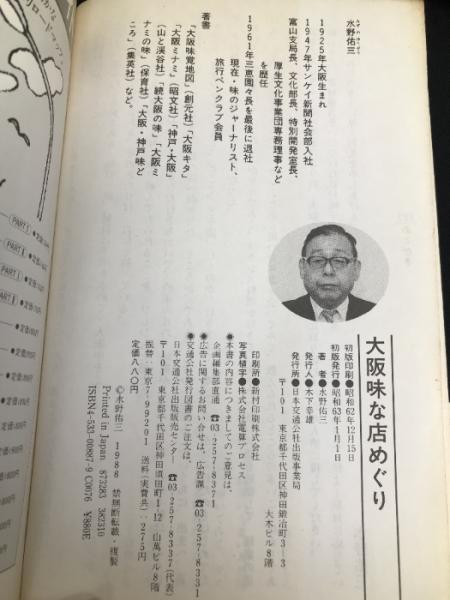 水野佑三
1925年大阪生まれ
1947年サンケイ新聞社会部入社
富山支局長、文化部長、特別開発室長、
厚生文化事業団専務理事など
を歴任
1961年三恵園々長を最後に退社
現在・味のジャーナリスト、
旅行ペンクラブ会員
著書
「大阪味覚地図」(創元社)「大阪キタ」
「大阪ミナミ」(昭文社)「神戸・大阪」
(山と渓谷社)「続大阪の味」「大阪ミ
ナミの味」(保育社)「大阪・神戸味ど
ころ」(集英社)など。
大阪味な店めぐり
初版印刷●昭和62年12月15日
初版発行●昭和63年1月1日
著者●水野佑三
発行人●木下幸雄
発行所●日本交通公社出版事業局
〒101 東京都千代田区神田鍛冶町3-3
大木ビル8階
印刷所●新村印刷株式会社
写真植字●株式会社電算プロセス
●本書の内容につきましてのご意見は、
企画編集部直通 ☎03-257-8371
●広告に関するお問い合せは、広告課
☎03-257-8391
●交通公社発行図書のご注文は、
日本交通公社出版販売センター ☎03-257-8337(代表)
〒101 東京都千代田区神田須田町1-12 山萬ビル8階
振替・東京7-99201 送料(実費共)・275円
定価八八〇円
©水野佑三 1988 禁無断転載・複製
Printed in Japan 873283 382310
ISBN4-533-00897-9 C0076 ¥880E
PART I
PART II
PART I
PART II